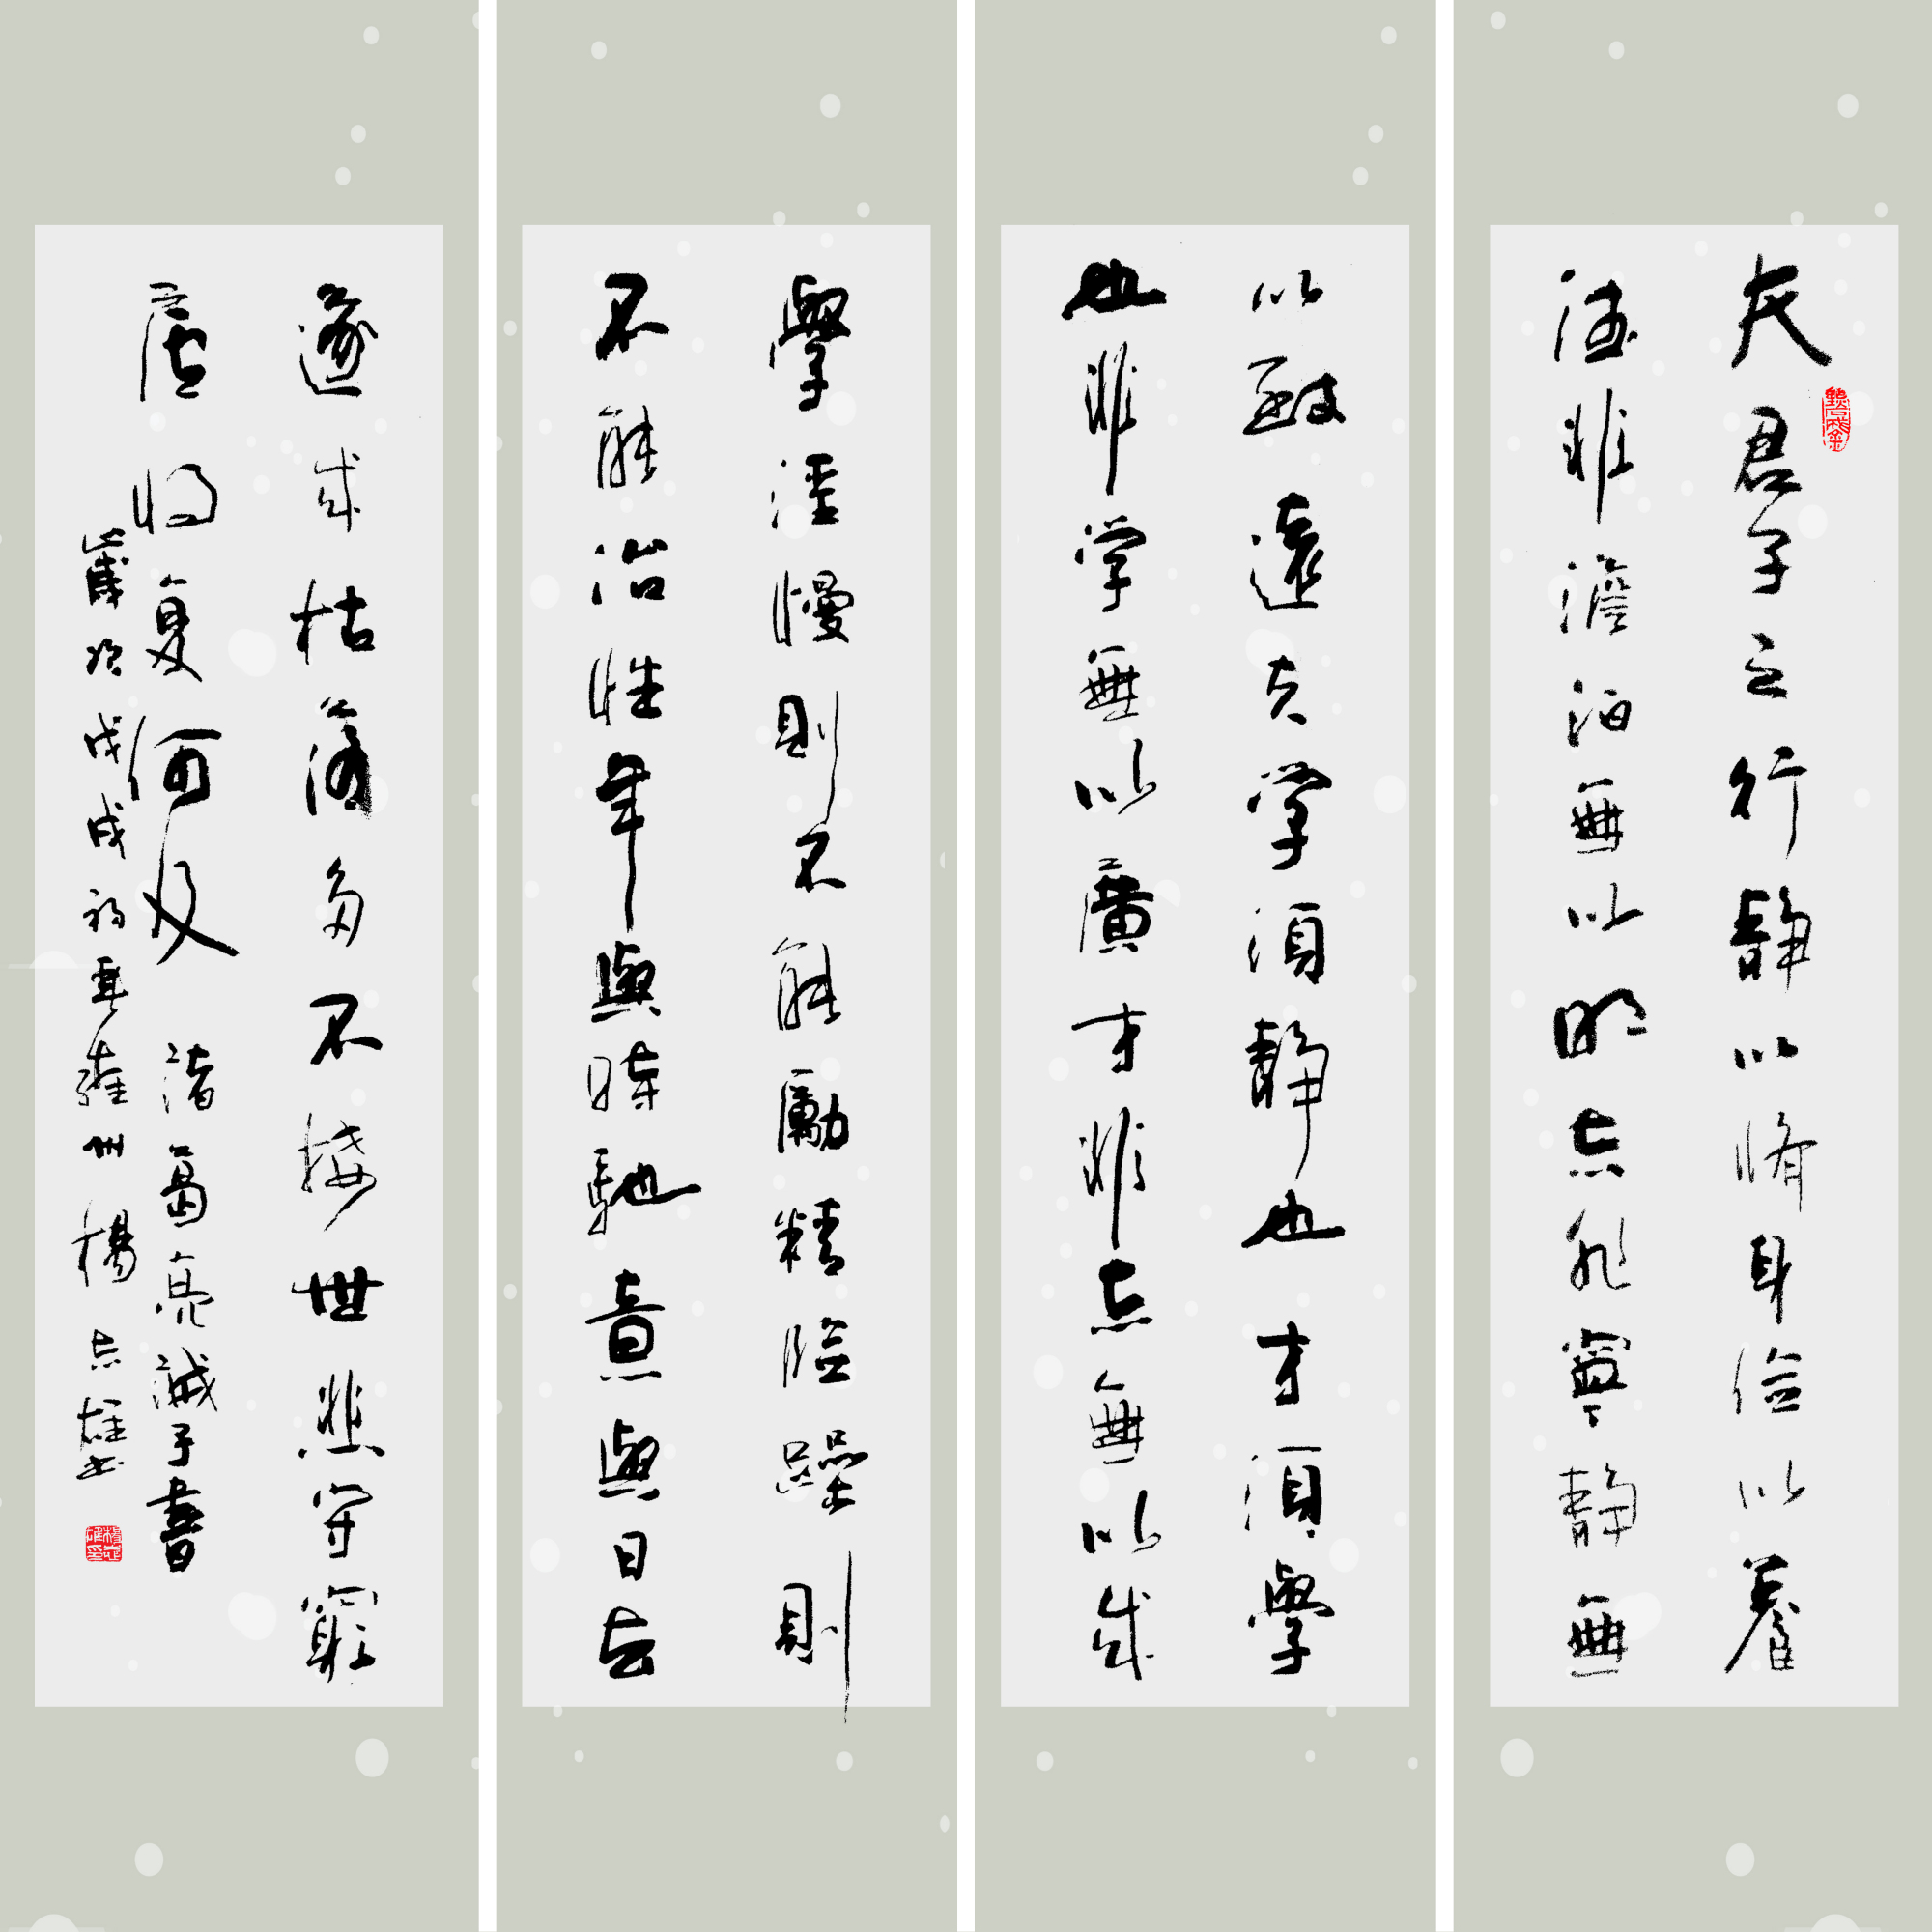 夫君子之行静以脩身儉以養
德非澹泊無以明志非寧静無
以致遠夫学須静也才須學
也非学無以廣才非志無以成
學淫慢則不能勵精險躁則
不能冶性年與時馳意與日去
遂成枯落多不接世悲守窮
廬将复何及 諸葛亮誡子書
歲次戊戌初夏雍州楊志雄書